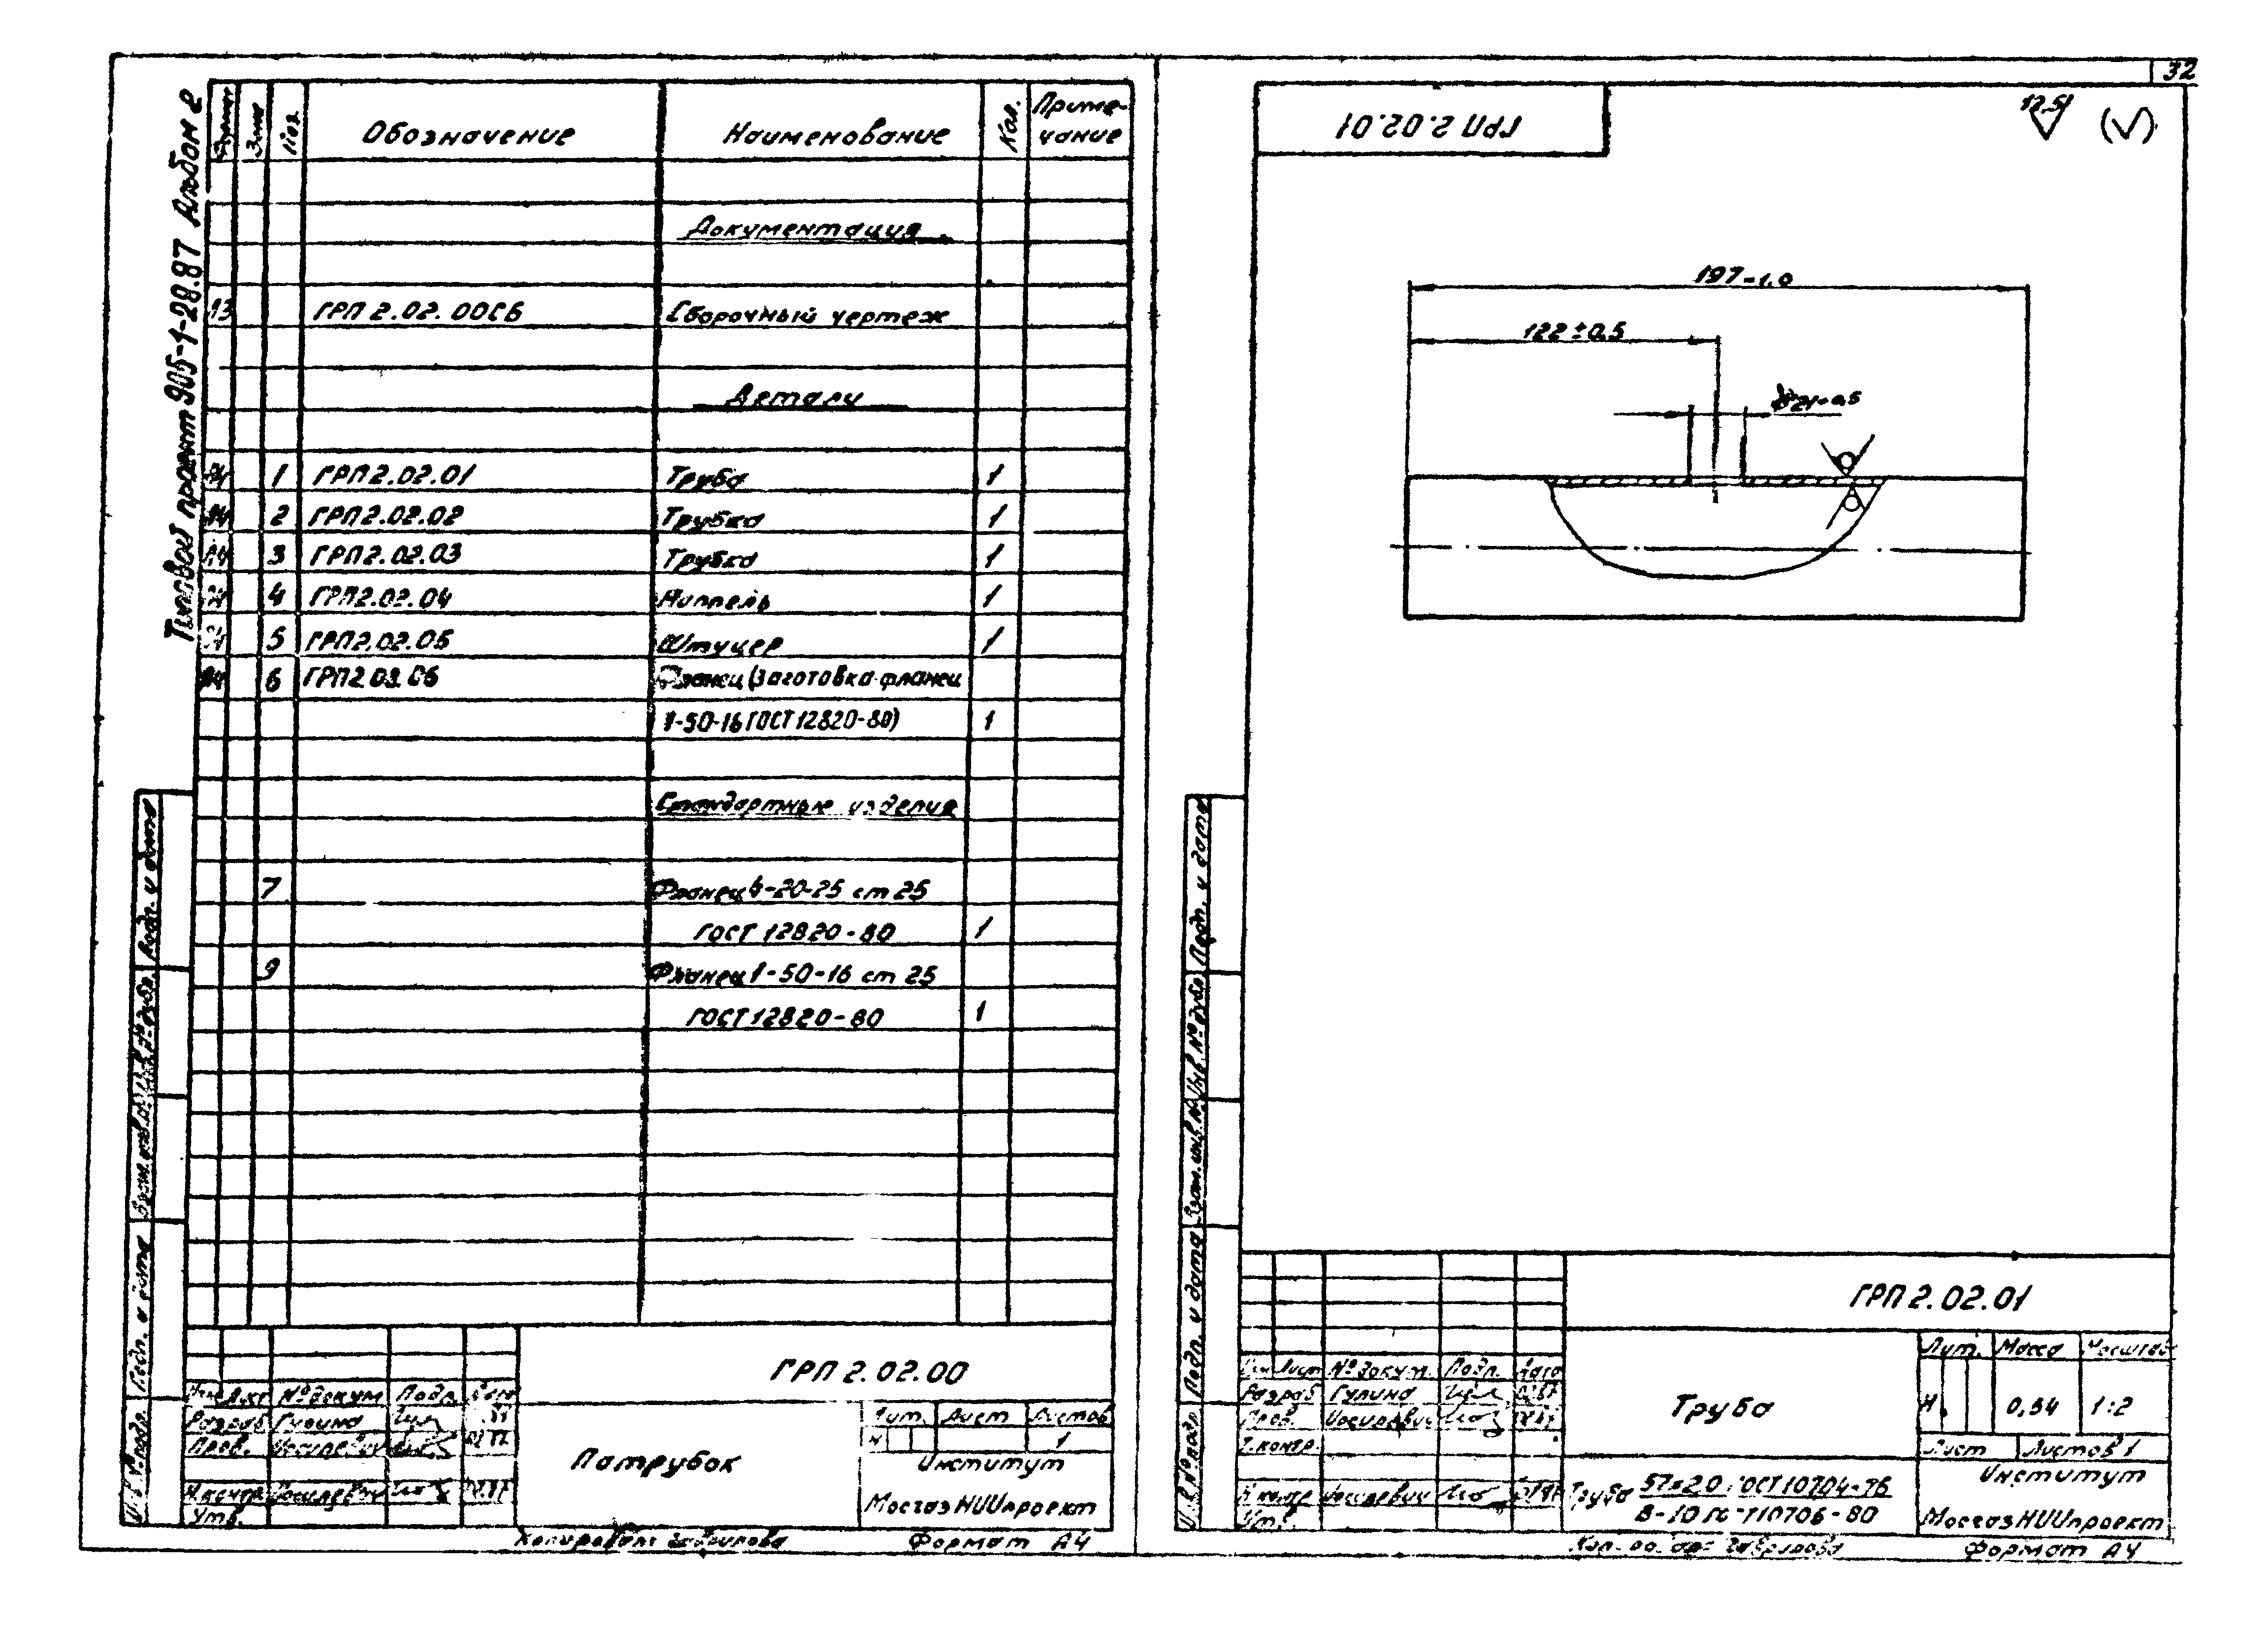 32
Типовой проект 905-1-28.87 Альбом 2
Формат Зона Поз. Обозначение Наименование Кол. Приме-
чание
Документация
А3 ГРП 2.02.00СБ Сборочный чертеж
Детали
А4 1 ГРП 2.02.01 Труба 1
А4 2 ГРП 2.02.02 Трубка 1
А4 3 ГРП 2.02.03 Трубка 1
А4 4 ГРП 2.02.04 Ниппель 1
А4 5 ГРП 2.02.05 Штуцер 1
А4 6 ГРП 2.03.06 Фланец (заготовка-фланец
1-50-16 ГОСТ 12820-80) 1
Стандартные изделия
7 Фланец 1-20-25 ст 25
ГОСТ 12820-80 1
9 Фланец 1-50-16 ст 25
ГОСТ 12820-80 1
Подп. и дата
Инв. № дубл.
Взам. инв. №
Подп. и дата
Инв. № подл.
ГРП 2.02.00
Изм. Лист № докум. Подп. Дата
Разраб. Гулина
Пров.
Н.контр.
Утв.
Патрубок
Лит. Лист Листов
И 1
Институт
МосгазНИИпроект
Копировал: Гаврилова Формат А4
ГРП 2.02.01
12,5 (√)
197-1,0
122±0,5
⌀21+0,5
Подп. и дата
Инв. № дубл.
Взам. инв. №
Подп. и дата
Инв. № подл.
ГРП 2.02.01
Изм. Лист № докум. Подп. Дата
Разраб. Гулина
Пров.
Т.контр.
Н.контр.
Утв.
Труба
Лит. Масса Масштаб
И 0,54 1:2
Лист Листов 1
Труба 57×2.0 ГОСТ 10704-76
В-10 ГОСТ 10706-80
Институт
МосгазНИИпроект
Копировал: Гаврилова Формат А4